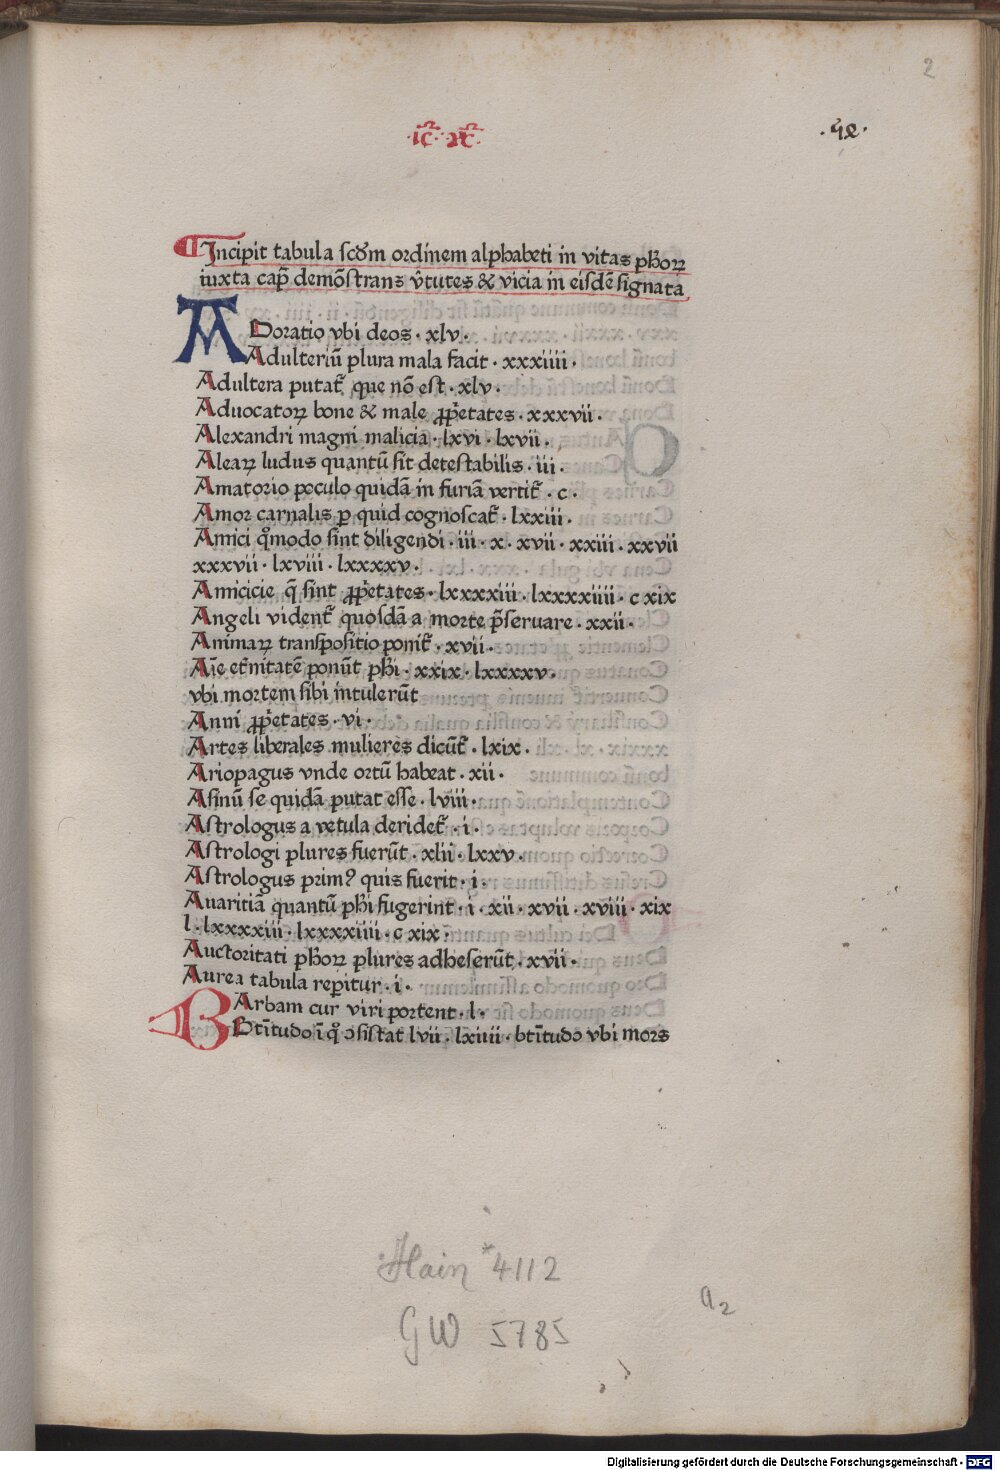 2
.ic. xc.
¶Incipit tabula scd̄m ordinem alphabeti in vitas ph̄oꝝ
iuxta cap̄ demōstrans v̄tutes & vicia in eisdē signata
ADoratio vbi deos · xlv ·
Adulteriū plura mala facit · xxxiiii ·
Adultera putat᷑ que nō est · xlv ·
Aduocatoꝝ bone & male ꝓp̄etates · xxxvii ·
Alexandri magni malicia · lxvi · lxvii ·
Aleaꝝ ludus quantū sit detestabilis · iii ·
Amatorio poculo quidā in furiā vertit᷑ · c ·
Amor carnalis p quid cognoscat᷑ · lxxiii ·
Amici qͦmodo sint diligendi · iii · x · xvii · xxiii · xxvii
xxxvii · lxviii · lxxxxv ·
Amicicie q̄ sint ꝓp̄etates · lxxxxiii · lxxxxiiii · c xix
Angeli vident᷑ quosdā a morte p̄seruare · xxii ·
Animaꝝ transpositio ponit᷑ · xvii ·
Aīe et̄nitatē ponūt ph̄i · xxix · lxxxxv ·
vbi mortem sibi intulerūt
Anni ꝓp̄etates · vi ·
Artes liberales mulieres dicūt᷑ · lxix ·
Ariopagus vnde ortū habeat · xii ·
Asinū se quidā putat esse · lviii ·
Astrologus a vetula deridet᷑ · i ·
Astrologi plures fuerūt · xlii · lxxv ·
Astrologus primꝰ quis fuerit · i ·
Auaritiā quantū ph̄i fugerint · i · xii · xvii · xviii · xix
l · lxxxxiii · lxxxxiiii · c xix ·
Auctoritati ph̄oꝝ plures adheserūt · xvii ·
Aurea tabula reperitur · i ·
BArbam cur viri portent · l ·
Btītudo ī qͦ ↄsistat lvii · lxiiii · btītudo vbi mors
Hain *4112
GW 5785
a2
Digitalisierung gefördert durch die Deutsche Forschungsgemeinschaft · DFG